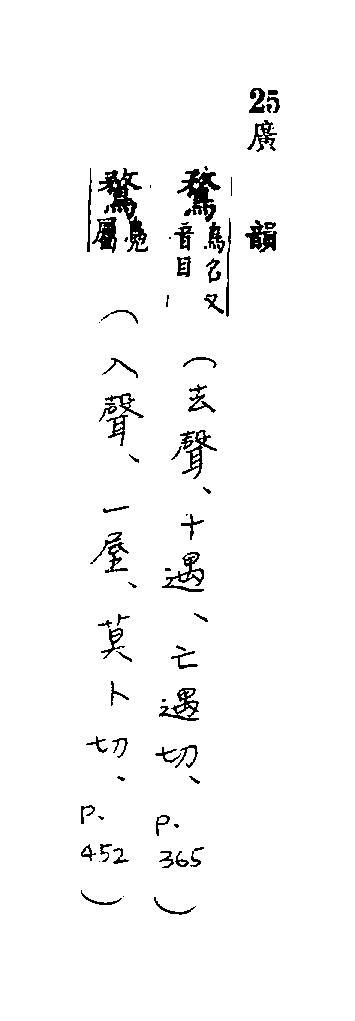 25
廣韻
鶩鳥名又音目(去聲、十遇、亡遇切、p.365)
鶩鳧屬(入聲、一屋、莫卜切、p.452)